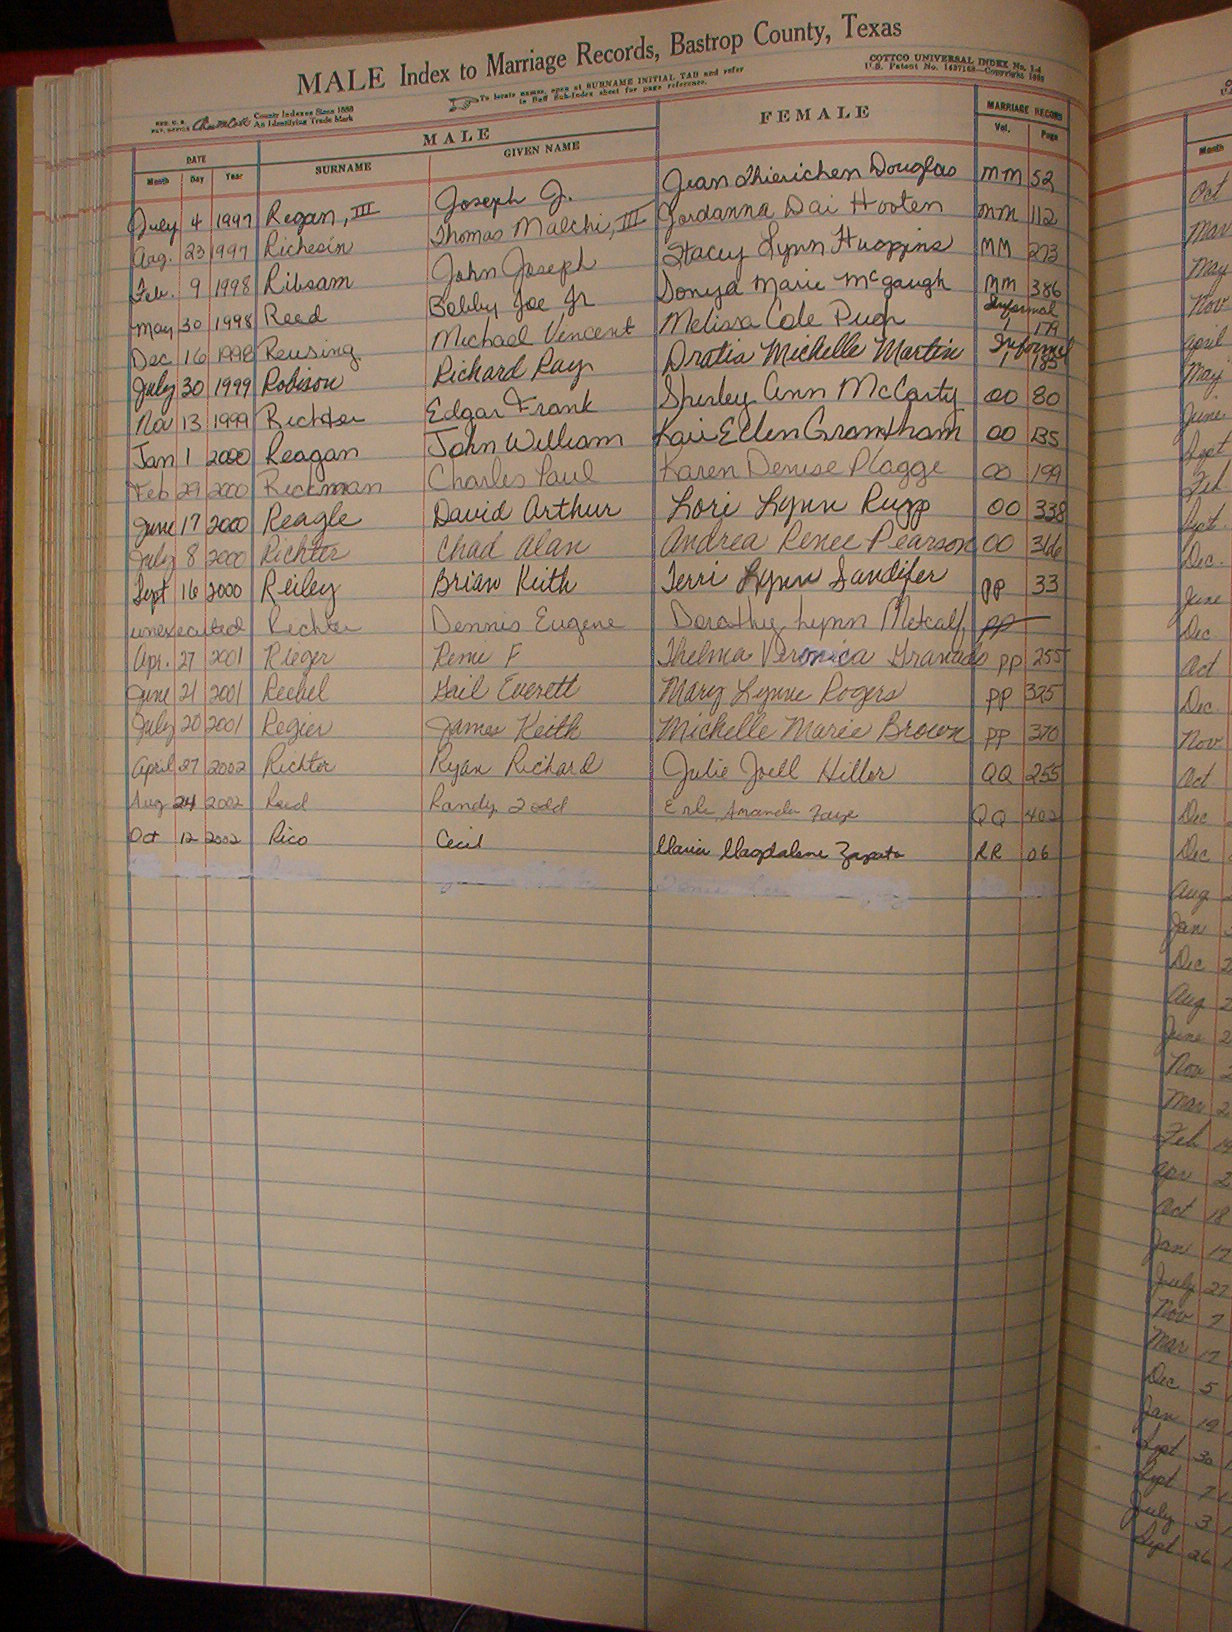 MALE Index to Marriage Records, Bastrop County, Texas
COTTCO UNIVERSAL INDEX No. 1-4
U.S. Patent No. Copyright
To locate names, open at SURNAME INITIAL TAB and refer
to Buff Sub-Index sheet for page reference.
REG. U. S. PAT. OFFICE County Indexes Since 1888
An Identifying Trade Mark
DATE MALE FEMALE MARRIAGE RECORD
Month Day Year SURNAME GIVEN NAME Vol. Page
July 4 1997 Regan, III Joseph J. Jean Thierichen Douglas MM 52
Aug. 23 1997 Richesin Thomas Malchi, III Jordanna Dai Hooten MM 112
Feb. 9 1998 Ribsam John Joseph Stacey Lynn Huggins MM 273
May 30 1998 Reed Bobby Joe Jr Donya Marie McGaugh MM 386
Dec 16 1998 Reusing Michael Vincent Melissa Cole Pugh Informal 1 179
July 30 1999 Robison Richard Ray Dratia Michelle Martin Informal 1 185
Nov 13 1999 Richter Edgar Frank Shirley Ann McCarty OO 80
Jan 1 2000 Reagan John William Kari Ellen Gramtham OO 135
Feb 29 2000 Rickman Charles Paul Karen Denise Plagge OO 199
June 17 2000 Reagle David Arthur Lori Lynn Rupp OO 338
July 8 2000 Richter Chad Alan Andrea Renee Pearson OO 366
Sept 16 2000 Reiley Brian Keith Terri Lynn Sandifer PP 33
unexecuted Richter Dennis Eugene Dorothy Lynn Metcalf PP
Apr. 27 2001 Rieger Rene F Thelma Veronica Granado PP 255
June 21 2001 Rechel Gail Everett Mary Lynne Rogers PP 325
July 20 2001 Regier James Keith Michelle Marie Brown PP 370
April 27 2002 Richter Ryan Richard Julie Joell Hiller QQ 255
Aug 24 2002 Reid Randy Todd Amanda Faye QQ 402
Oct 12 2002 Rico Cecil Maria Magdalena Zapata RR 06
Month
Oct
Mar
May
Nov
April
May
June
Sept
Feb
Sept
Dec.
June
Dec
Oct
Dec
Nov
Oct
Dec
Dec
Aug
Jan
Dec
Aug
June
Nov
Mar
Feb
Apr
Oct 18
Jan 17
July 27
Nov 7
Mar 17
Dec 5
Jan 19
Sept 30
Sept 7
July 3
Sept 26